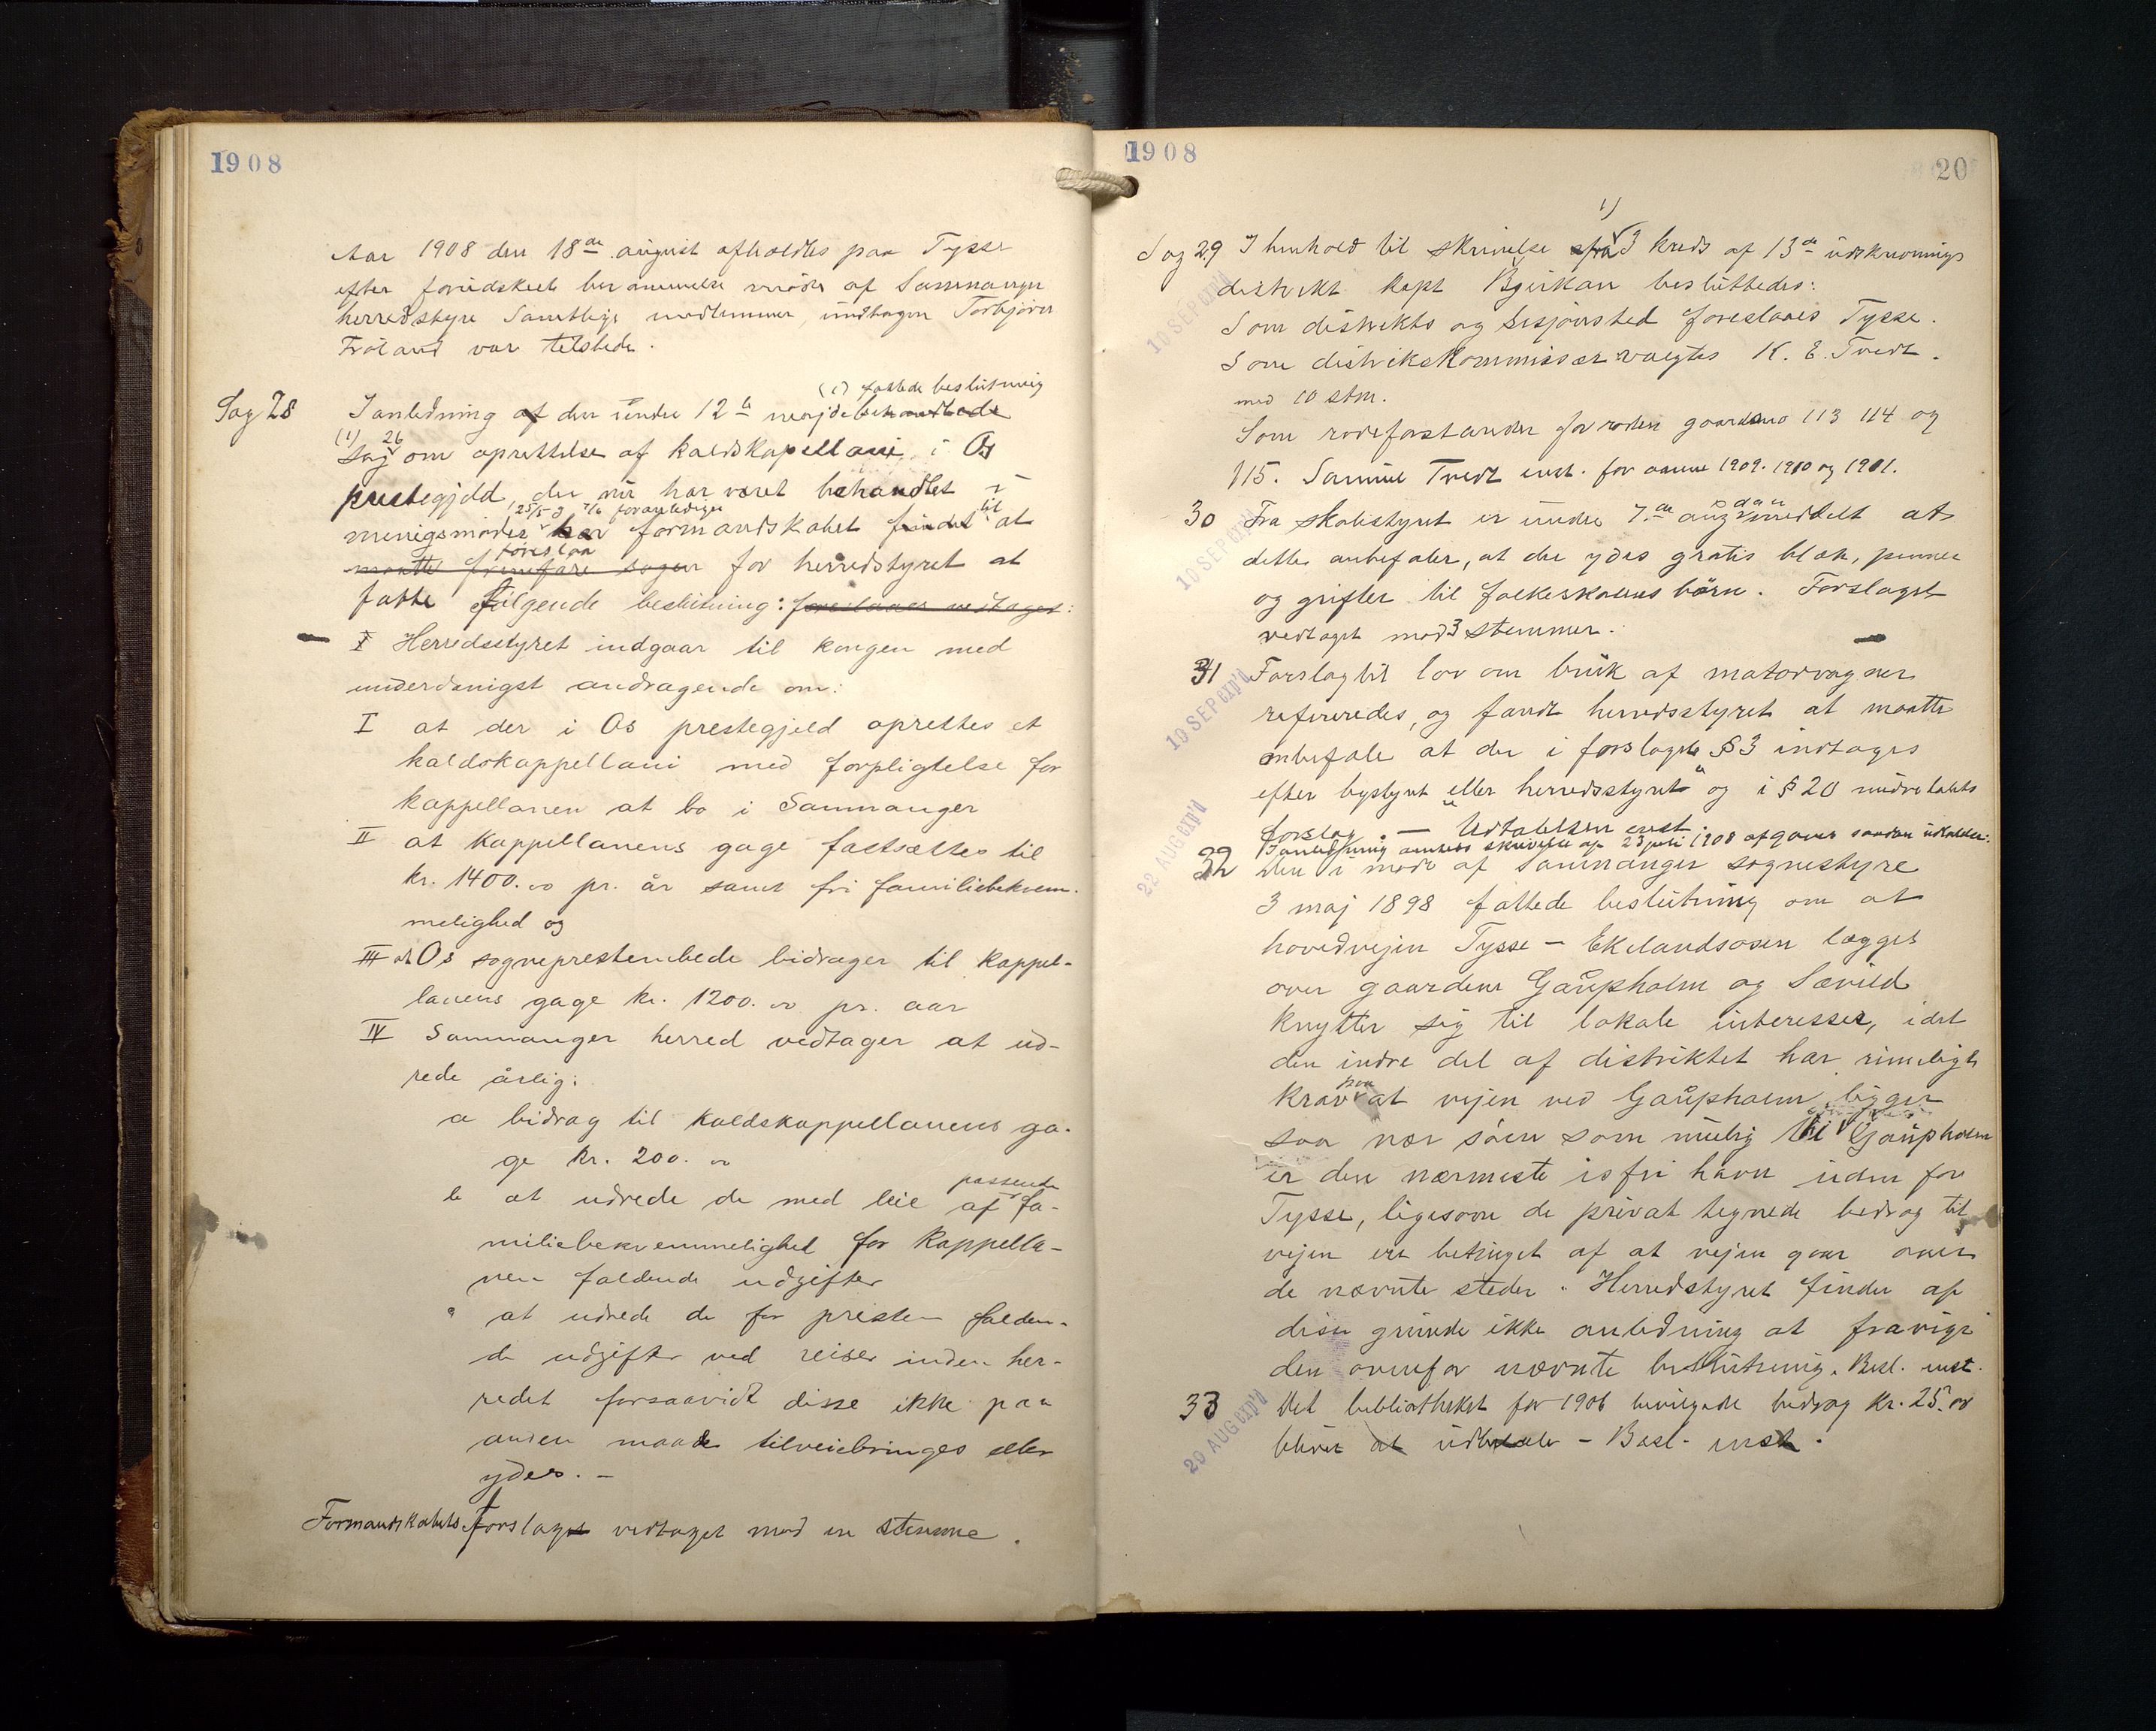 1908
Aar 1908 den 18de august afholdtes paa Tysse
efter forudskeet berammelse møde af Samnanger
herredstyre Samtlige medlemmer undtagen Torbjørn
Frøland var tilstede.
(1) fattede beslutning
Sag 28 I anledning af den under 12te maj de behandlede
(1) 26
Sag om oprettelse af kaldskapellani i Os
prestegjeld, der nu har været behandlet i
25/5 og 7/6 til
menigsmøder har formandskabet findet at
foreslaa
maatte fremføre sagen for herredstyret at
fatte følgende beslutning: foreslaaes vedtaget:
I Herredsstyret indgaar til kongen med
underdanigst andragende om:
I at der i Os prestegjeld oprettes et
kaldskappellani med forpligtelse for
kappellanen at bo i Samnanger
II at kappellanens gage fastsættes til
kr. 1400.00 pr. år samt fri familiebekvem-
melighed og
III at Os sogneprestembede bidrager til kappel-
lanens gage kr. 1200.00 pr. aar
IV Samnanger herred vedtager at ud-
rede årlig:
a bidrag til kaldskappellanens ga-
ge kr. 200.00
passende
b at udrede de med leie af fa-
miliebekvemmelighed for kappella-
nen faldende udgifter
c at udrede de for presten falden-
de udgifter ved reiser inden her-
redet forsaavidt disse ikke paa
anden maade tilveiebringes eller
ydes. -
Formandskabets forslag vedtaget mod en stemme.
1908
20
1)
Sag 29 I henhold til skrivelse fra 3 kreds af 13de udskrivnings
distrikt kapt Bjerkan besluttedes:
Som distrikts og sesjonsted foreslaaes Tysse.
Som distrikskommissær valgtes K. E. Tvedt.
med 10 stm.
Som rodeforstander for roden gaardsno 113 114 og
115. Samuel Tvedt enst. for aarene 1909. 1910 og 1901.
30 Fra skolestyret er under 7de aug d.a. meddelt at
dette anbefaler, at der ydes gratis blæk, penner
og grifler til folkeskolens børn. Forslaget
vedtaget mod 3 stemmer.
31 Forslag til lov om bruk af motorvogner
refereredes, og fandt herredsstyret at maatte
anbefale at der i forslagets § 3 indtages
efter bystyret "eller herredsstyret" og i § 20 mindretallets
forslag. — Udtalelsen enst.
I anledning amtets skrivelse af 23 juli 1908 afgaves saadan udtalelse:
32 Den i møde af Samnanger sognestyre
3 maj 1898 fattede beslutning om at
hovedvejen Tysse - Ekelandsosen lægges
over gaardene Gaupholm og Sævild
knytter sig til lokale interesser, idet
den indre del af distriktet har rimeligt
paa
krav at vejen ved Gaupholm ligger
saa nær søen som mulig thi Gaupholm
er den nærmeste isfri havn uden for
Tysse, ligesom de privat tegnede bedrag til
vejen er betinget af at vejen gaar over
de nævnte steder. Herredstyret finder af
disse grunde ikke anledning at fravige
den ovenfor nævnte beslutning. Besl. enst.
33 Det bibliotheket for 1906 bevilgede bedrag kr. 25.00
bliver at udbetale - Besl. enst.
10 SEP exp'd
10 SEP exp'd
10 SEP exp'd
22 AUG exp'd
20 AUG exp'd